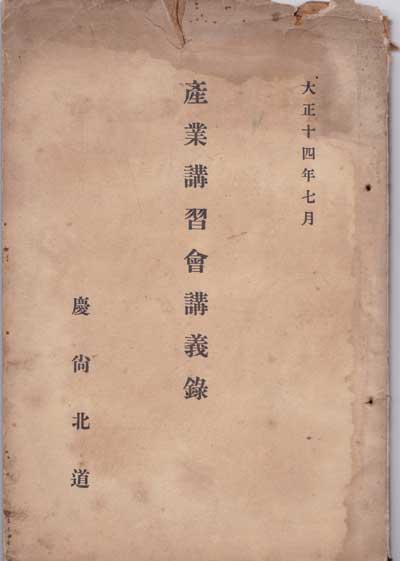 大正十四年七月
產業講習會講義錄
慶尙北道